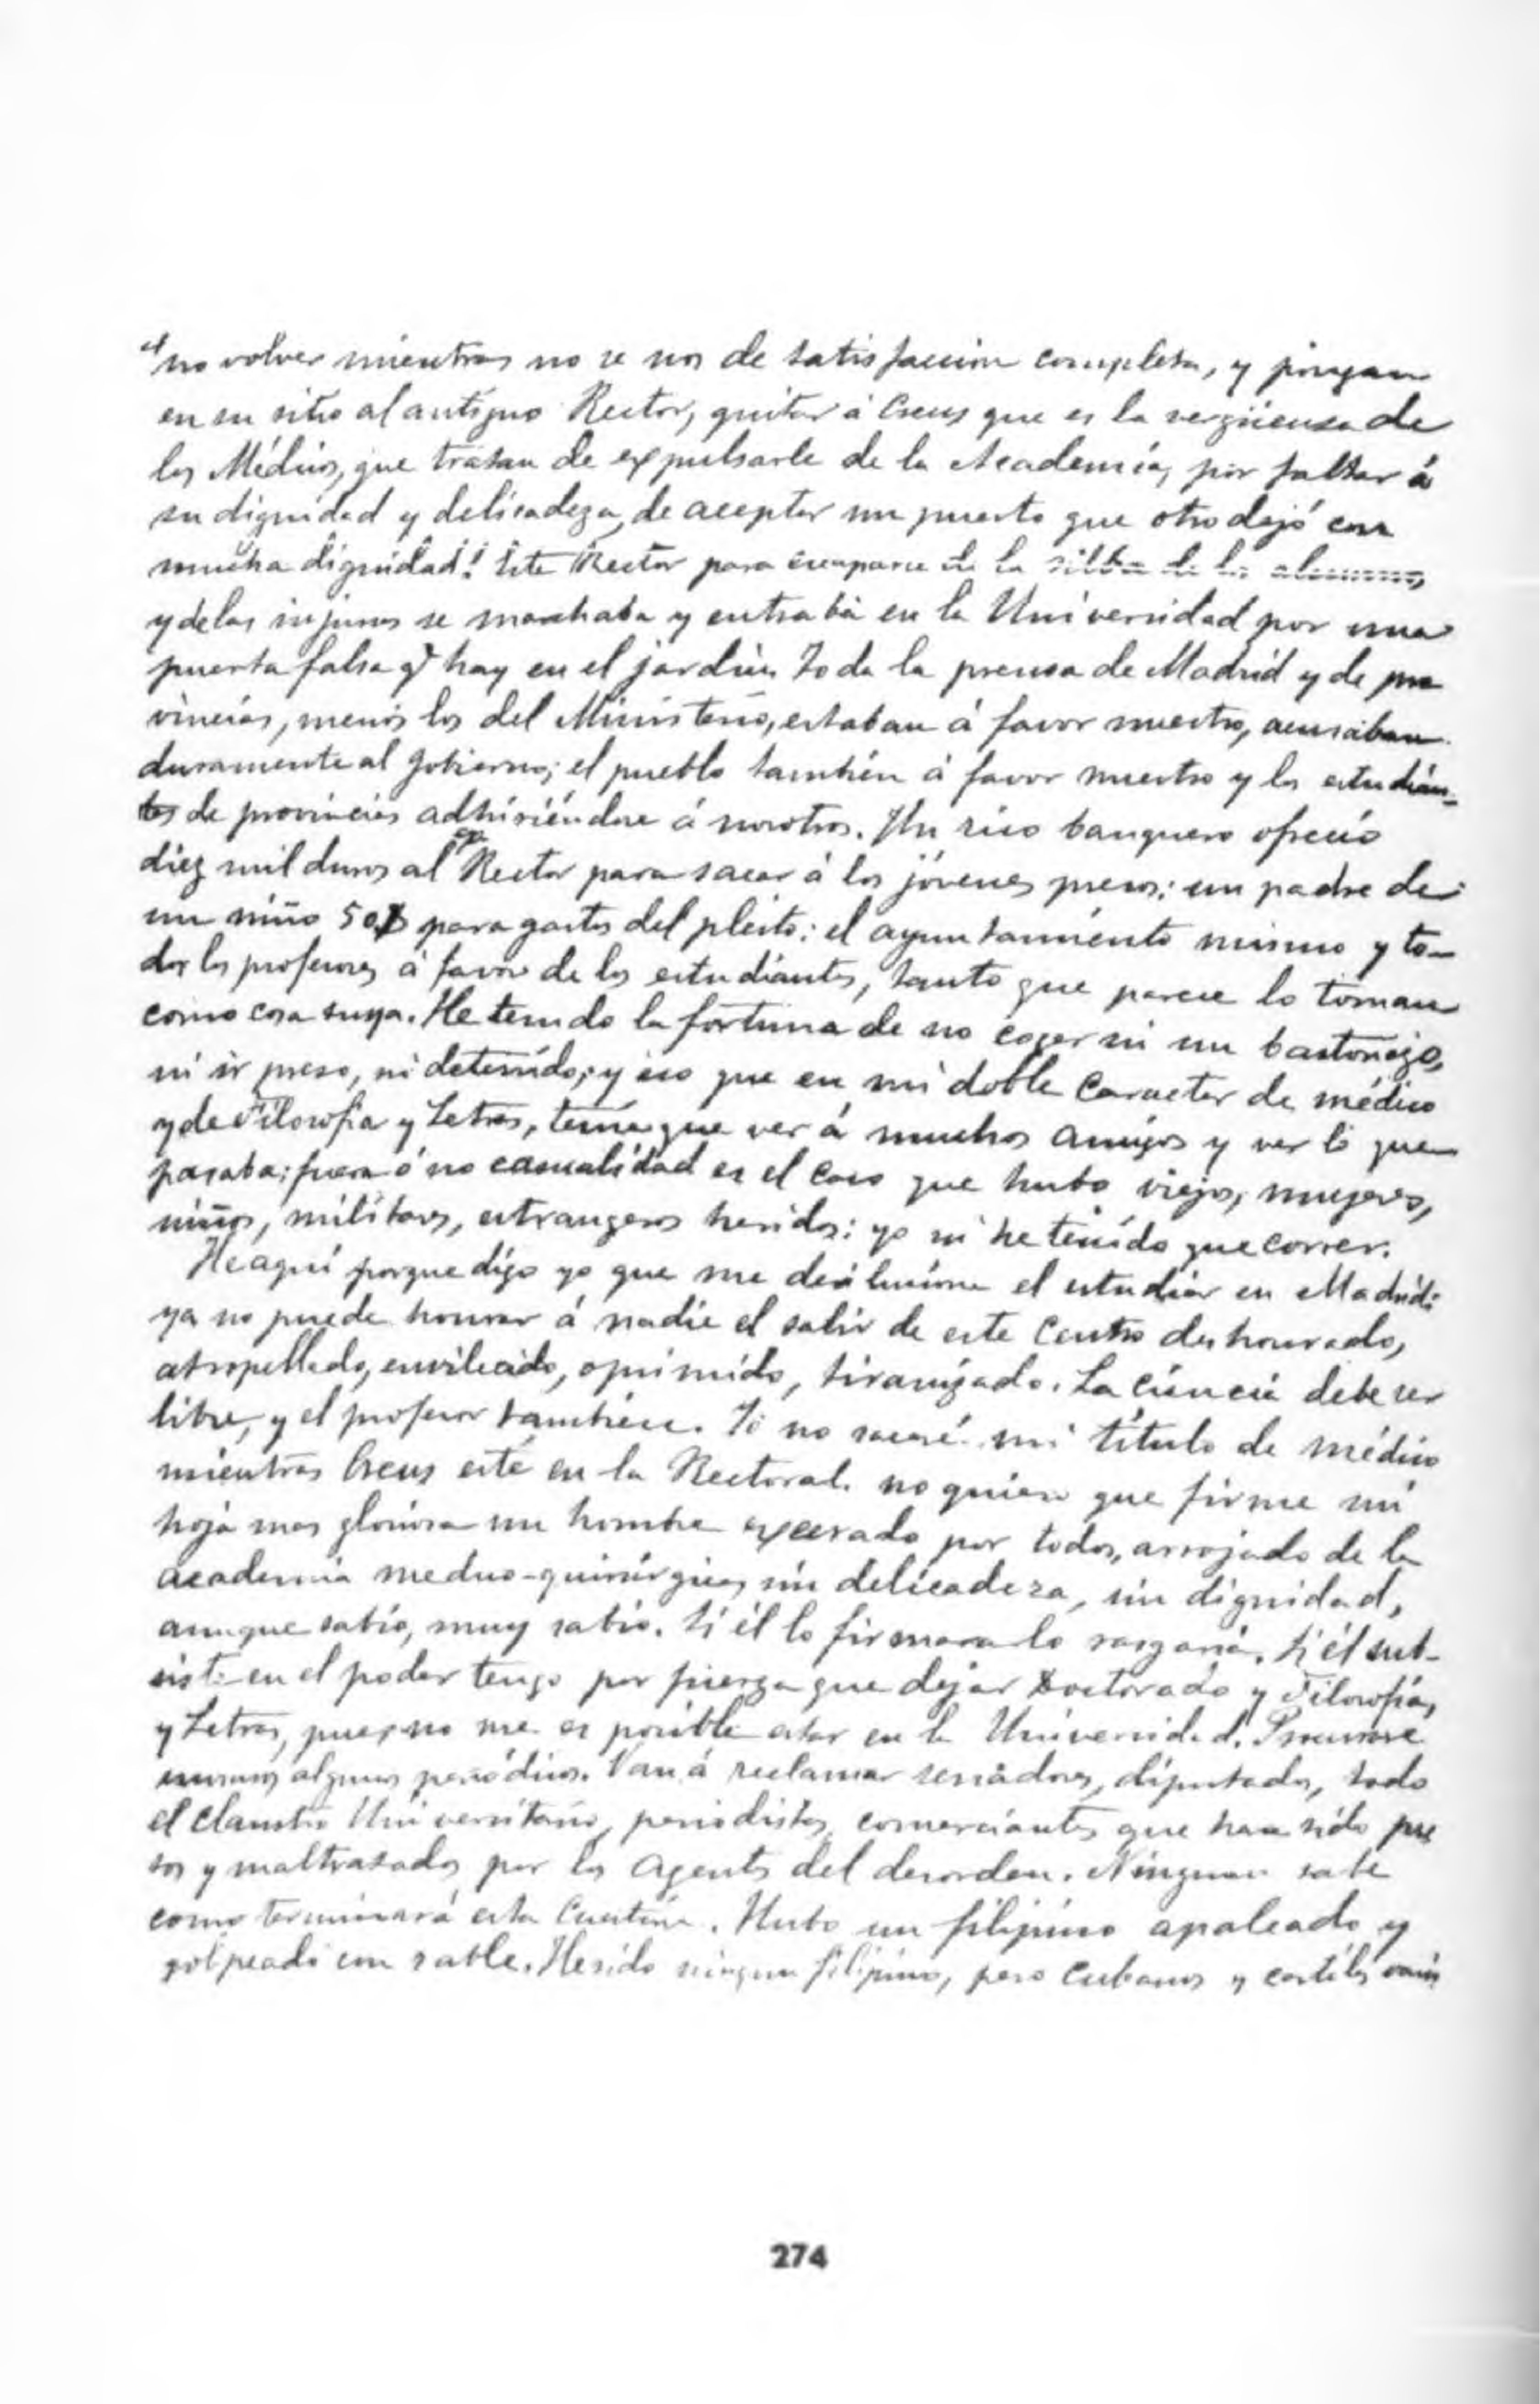 no volver mientras no se nos dé satisfaccion completa, y pongan
en su sitio al antiguo Rector, quitar á Creus que es la vergüenza de
los Médicos, que tratan de expulsarle de la Academia, por faltar á
su dignidad y delicadeza, de aceptar un puesto que otro dejó con
mucha dignidad! Este Rector para escaparse de la silba de los alumnos,
y de las injurias se marchaba y entraba en la Universidad por una
puerta falsa q.e hay en el jardin. Toda la prensa de Madrid y de pro
vincias, menos los del Ministerio, estaban á favor nuestro, acusaban
duramente al Gobierno; el pueblo también á favor nuestro y los estudian-
tes de provincias adhiriéndose á nosotros. Un rico banquero ofreció
diez mil duros al Rector para sacar á los jóvenes presos; un padre de
un niño 50 para gastos del pleito: el ayuntamiento mismo y to-
dos los profesores á favor de los estudiantes, tanto que parece lo toman
como cosa suya. He tenido la fortuna de no coger ni un bastonazo,
ni ir preso, ni detenido; y eso que en mi doble Caracter de médico
y de Filosofía y Letras, tenía que ver á muchos amigos y ver lo que
pasaba; fuera ó no casualidad es el caso que hubo viejos, mujeres,
niños, militares, estrangeros heridos: yo ni he tenido que correr.
He aquí porque digo yo que me desilusiona el estudiar en Madrid:
ya no puede honrar á nadie el salir de este Centro deshonrado,
atropellado, envilecido, oprimido, tiranizado. La ciencia debe ser
libre, y el profesor tambien. Yo no sacaré mi título de médico
mientras Creus esté en la Rectoral. no quiero que firme mi
hoja mas gloriosa un hombre execrado por todos, arrojado de la
academia medico-quirúrgica, sin delicadeza, sin dignidad,
aunque sabio, muy sabio. Si él lo firmara lo rasgaría. Si él sub-
siste en el poder tengo por fuerza que dejar Doctorado y Filosofía,
y Letras, pues no me es posible estar en la Universidad. Procurare
enviaros algunos periódicos. Van á reclamar senadores, diputados, todo
el claustro Universitario, periodistas, comerciantes que han sido pre
sos y maltratados por los agentes del desorden. Ninguno sabe
como terminará esta Cuestión. Hubo un filipino apaleado y
golpeado con sable. Herido ningun filipino, pero Cubanos y costilas varios
274